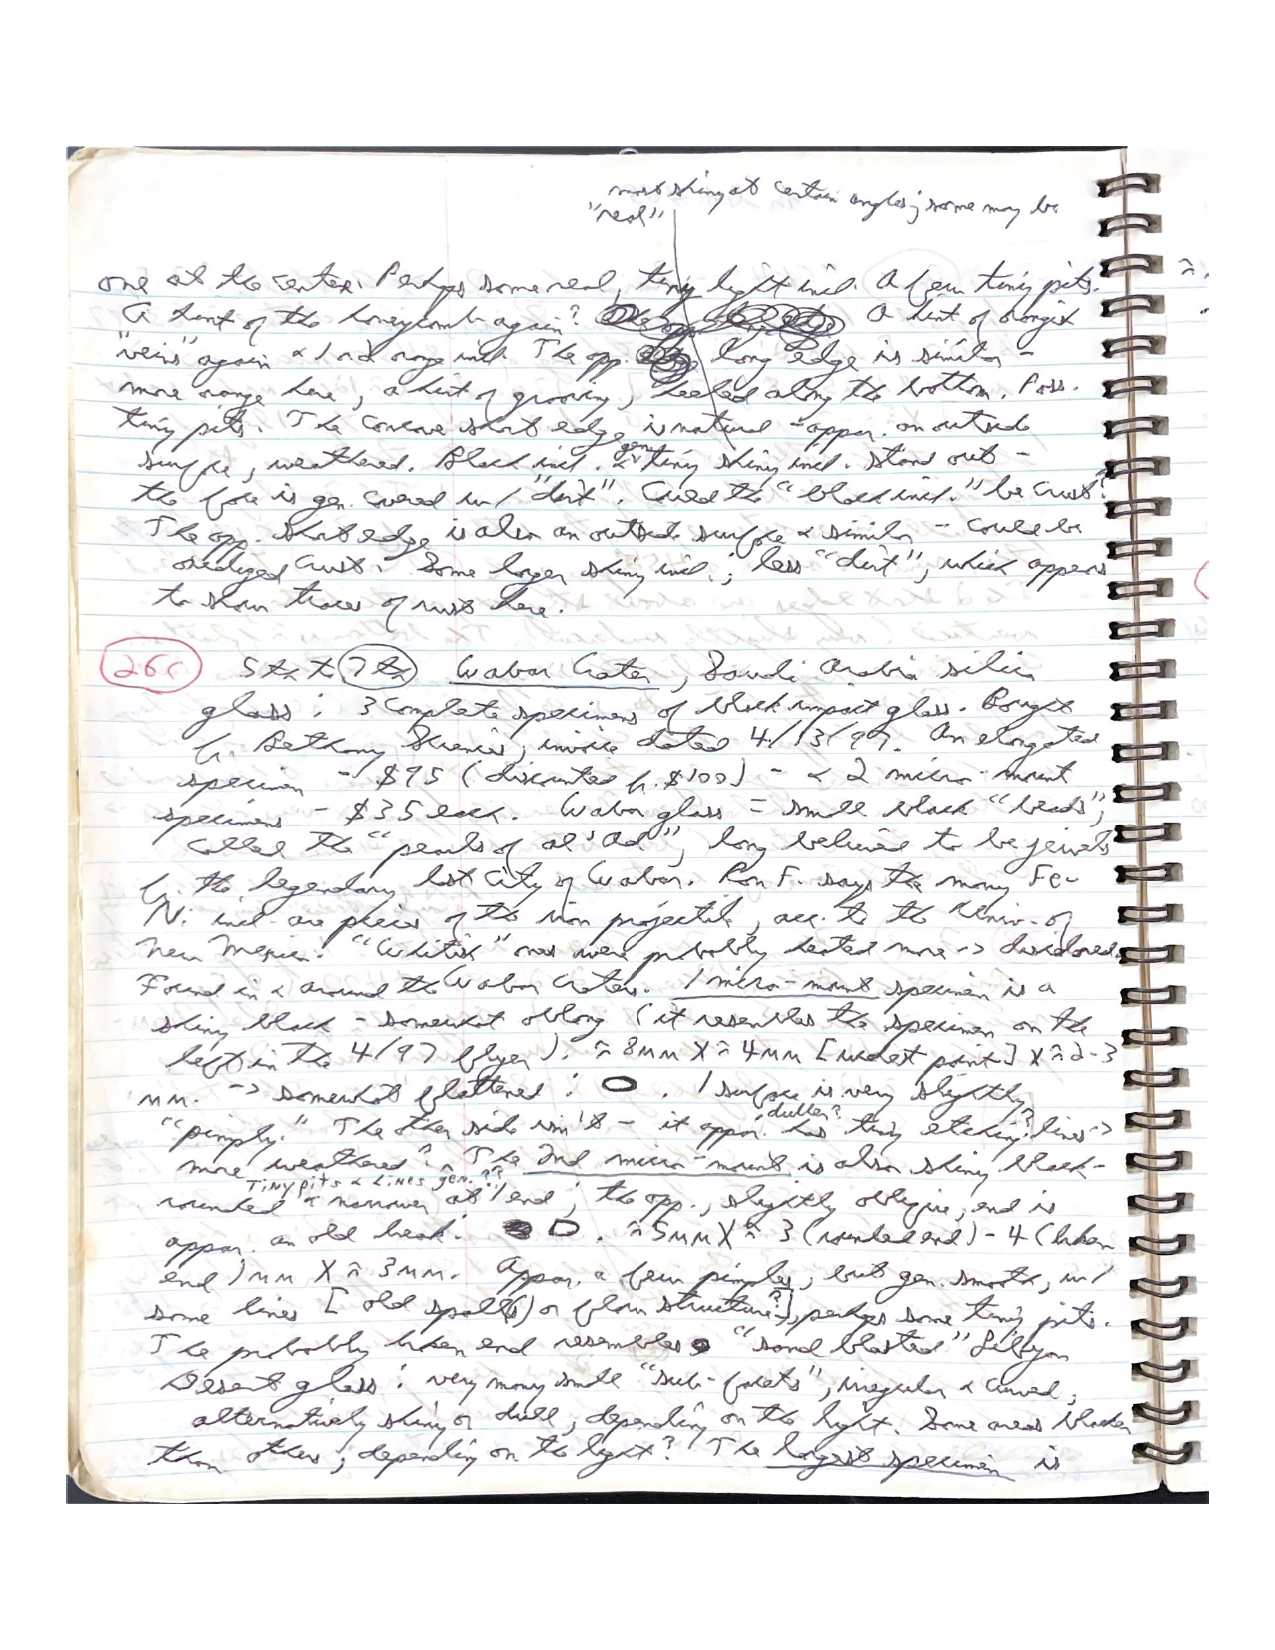 most shiny at certain angles; some may be
"real"
one at the center. Perhaps some real, tiny light incl. A few tiny pits.
A hint of the honeycomb again? A hint of orangish
"veins" again & 1 or 2 orange incl. The opp. long edge is similar -
more orange here, a hint of grooving, beveled along the bottom. Poss.
tiny pits. The concave short edge is natural - appar. an outside
surface, weathered. Black incl. & gen. tiny shiny incl. stand out -
the face is gen. covered w/ "dirt". Could the "black incl." be crust?
The opp. short edge is also an outside surface & similar - could be
oxidized crust. Some larger shiny incl.; less "dirt", which appears
to show traces of rust here.
26c 5th & 7th Wabar Crater, Saudi Arabia silica
glass: 3 complete specimens of black impact glass. Bought
fr. Bethany Sciences, invoice dated 4/13/97. An elongated
specimen - $95 (discounted fr. $100) - & 2 micro-mount
specimens - $35 each. Wabar glass = small black "beads",
called the "pearls of al 'Ad", long believed to be jewels
fr. the legendary lost city of Wabar. Ron F. says the many Fe-
Ni incl. are pieces of the iron projectile, acc. to the Univ. of
New Mexico. "Whitish" ones were probably heated more -> discolored.
Found in & around the Wabar Craters. 1 micro-mount specimen is a
shiny black - somewhat oblong (it resembles the specimen on the
left in the 4/97 flyer). ≈ 8mm X ≈ 4mm [widest point] X ≈ 2-3
mm. -> somewhat flattened: . 1 surface is very slightly
"pimply." The other side isn't - it appar. has duller? tiny etching? lines ->
more weathered? The 2nd micro-mount is also shiny black -
Tiny pits & lines gen.??
rounded & narrower at 1 end; the opp., slightly oblique, end is
appar. an old break: . ≈ 5mm X ≈ 3 (rounded end) - 4 (broken
end) mm X ≈ 3mm. Appar. a few pimples, but gen. smooth, w/
some lines [old spall(s) or flow structure?], perhaps some tiny pits.
The probably broken end resembles "sand blasted" Libyan
Desert glass: very many small "sub-facets", irregular & curved;
alternatively shiny or dull, depending on the light. Some areas blacker
than others, depending on the light? The largest specimen is